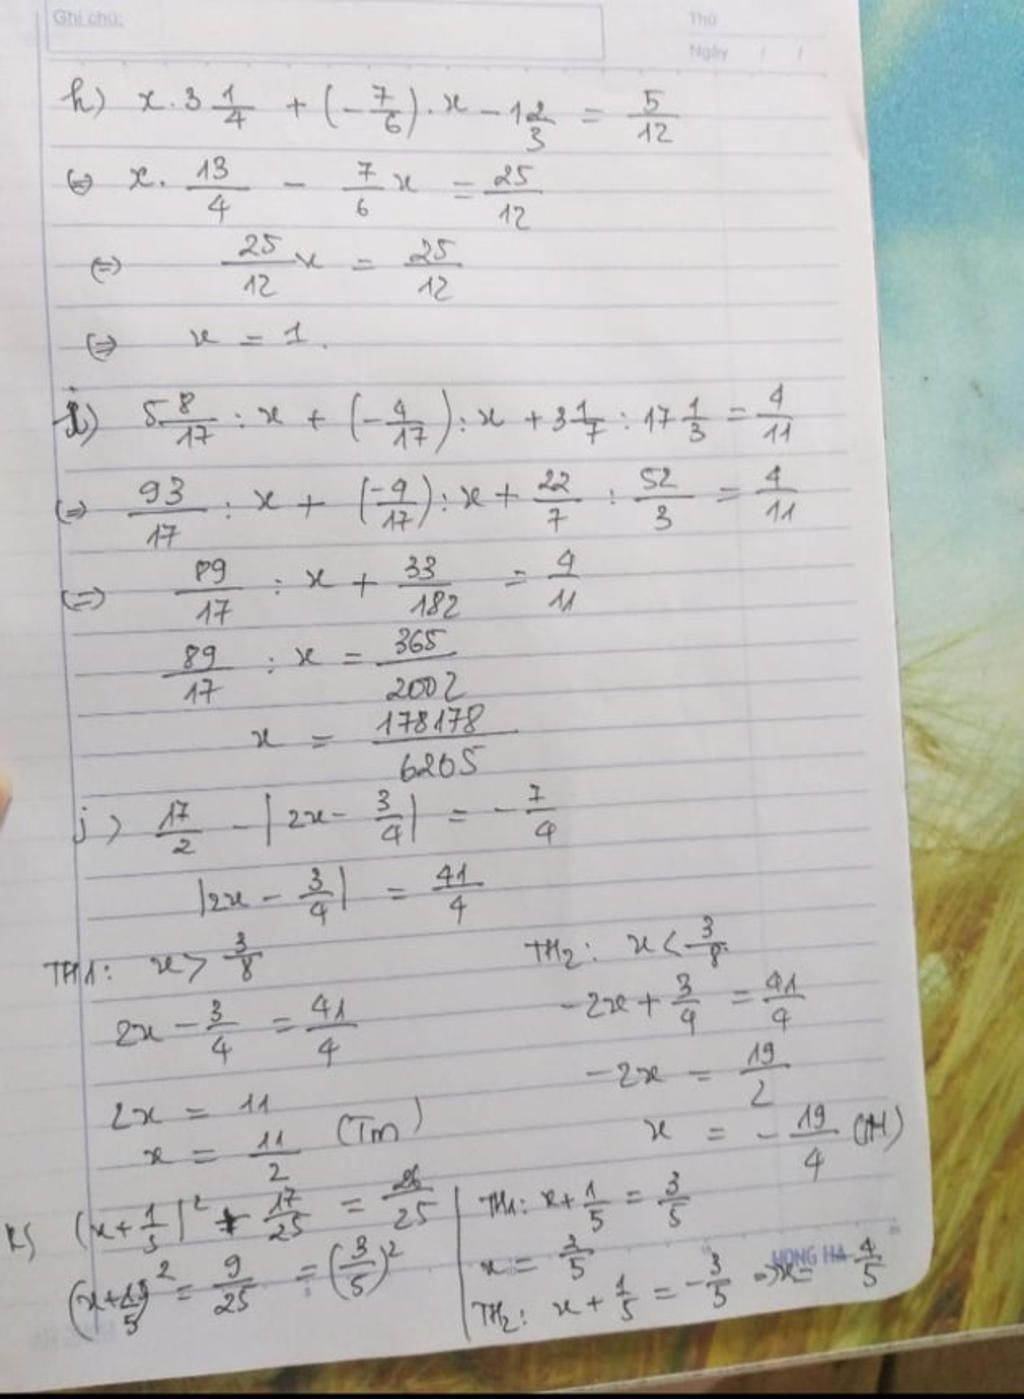 Ghi chú:
Thứ
Ngày / /
h) x . 3 1/4 + (- 7/6) . x - 1 2/3 = 5/12
(=) x . 13/4 - 7/6 x = 25/12
(=) 25/12 x = 25/12
(=) x = 1.
i) 5 8/17 : x + (- 4/17) : x + 3 1/7 : 17 1/3 = 4/11
(=) 93/17 : x + (-4/17) : x + 22/7 : 52/3 = 4/11
(=) 89/17 : x + 33/182 = 4/11
89/17 : x = 365/2002
x = 178178/6205
j) 17/2 - |2x - 3/4| = - 7/4
|2x - 3/4| = 41/4
TH1: x > 3/8
2x - 3/4 = 41/4
2x = 11
x = 11/2 (Tm)
TH2: x < 3/8
-2x + 3/4 = 41/4
-2x = 19/2
x = - 19/4 (TM)
k) (x + 1/5)² + 17/25 = 26/25
(x + 1/5)² = 9/25 = (3/5)²
TH1: x + 1/5 = 3/5
x = 
TH2: x + 1/5 = - 3/5 => x = - 4/5
HONG HA